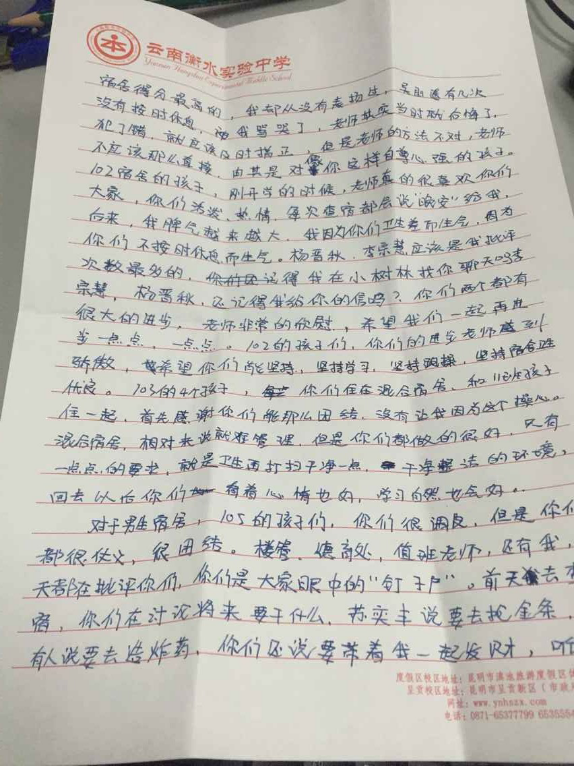 云南衡水实验中学
Yunnan Hengshui Experimental Middle School
宿舍得分最高的，我却从没有表扬过，吴
没有按时休息，我骂哭了，老师其实当时就后悔了，
犯了错，就应该及时指正，但是老师的方法不对，老师
不应该那么直接，由其是对像你这样自尊心强的孩子。
102宿舍的孩子，刚开学的时候，老师真的很喜欢你们
大家，你们活泼、热情，每次查宿都会说“晚安”给我，
后来，我脾气越来越大，我因为你们卫生差而生气，因为
你们不按时休息而生气。杨晋秋，李宗慧应该是我批评
次数最多的，记得我在小树林找你聊天吗李
宗慧，杨晋秋，还记得我给你的信吗？你们两个都有
很大的进步，老师非常的欣慰，希望我们一起再进
步一点点，一点点。102的孩子们，你们的进步老师感到
骄傲，希望你们能坚持，坚持学习，坚持跑操，坚持宿舍
优良。103的4个孩子，你们住在混合宿舍，和班孩子
住一起，首先感谢你们能那么团结，没有让我因为这个操心。
混合宿舍，相对来说就难管理，但是你们都做的很好，只有
一点点的要求，就是卫生再打扫干净一点，干净整洁的环境，
回去以后你们看着心情也好，学习自然也会好。
对于男生宿舍，105的孩子们，你们很调皮，但是你们
都很仗义，很团结。楼管、德育处，值班老师，还有我，
天都在批评你们，你们是大家眼中的“钉子户”。前天去
宿，你们在讨论将来要干什么，苏奕丰说要去抢金条，
有人说要去造炸药，你们还说要带着我一起发财，听
度假区校区地址：昆明市滇池旅游度假区
呈贡校区地址：昆明市呈贡新区（市政府
网址：www.ynhszx.com
电话：0871-65377799